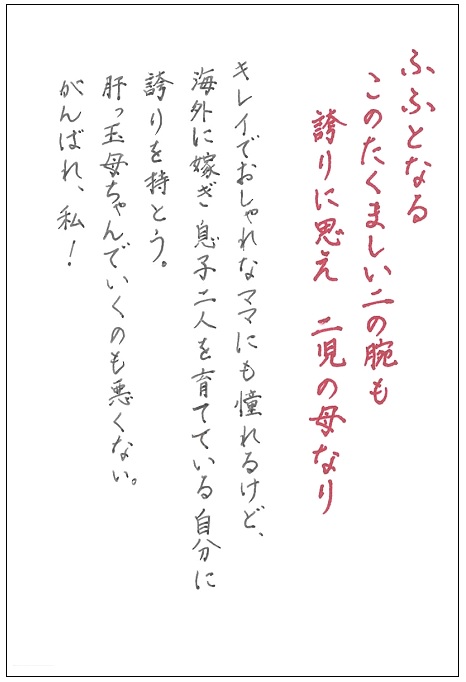 ふふとなる
このたくましい二の腕も
誇りに思え　二児の母なり
キレイでおしゃれなママにも憧れるけど、
海外に嫁ぎ息子二人を育てている自分に
誇りを持とう。
肝っ玉母ちゃんでいくのも悪くない。
がんばれ、私！